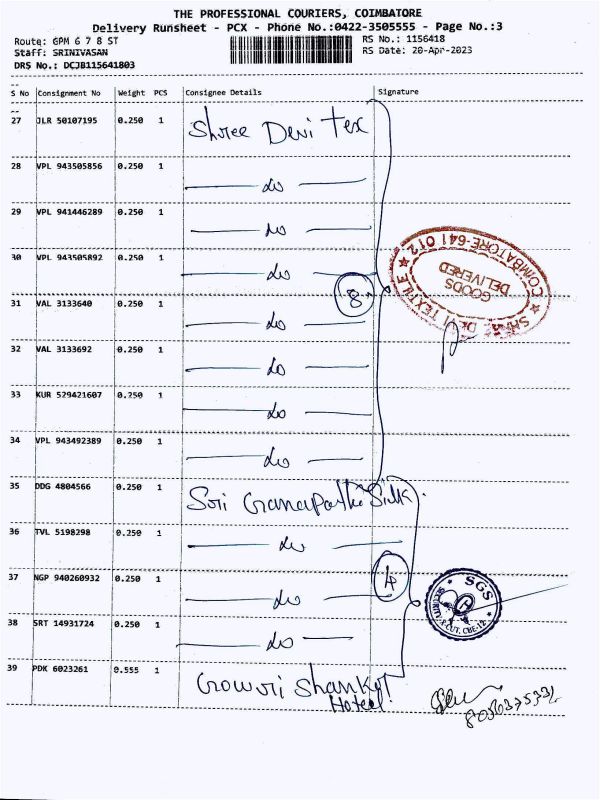 THE PROFESSIONAL COURIERS, COIMBATORE
Delivery Runsheet - PCX - Phone No.:0422-3505555 - Page No.:3
Route: GPM 6 7 8 ST RS No.: 1156418
Staff: SRINIVASAN RS Date: 20-Apr-2023
DRS No.: DCJB115641803
S No Consignment No Weight PCS Consignee Details Signature
27 JLR 50107195 0.250 1 Shree Devi Tex
28 VPL 943505856 0.250 1 — do —
29 VPL 941446289 0.250 1 — do —
30 VPL 943505892 0.250 1 — do —
8
31 VAL 3133640 0.250 1 — do —
32 VAL 3133692 0.250 1 — do —
33 KUR 529421607 0.250 1 — do —
34 VPL 943492389 0.250 1 — do —
GOODS
DELIVERED
DEVI TEXTILE
COIMBATORE-641 012
35 DDG 4804566 0.250 1 Sri Ganapathi Silk
36 TVL 5198298 0.250 1 — do —
37 NGP 940260932 0.250 1 — do —
4
38 SRT 14931724 0.250 1 — do —
SGS
39 PDK 6023261 0.555 1 Gowri Shankar
Hotel